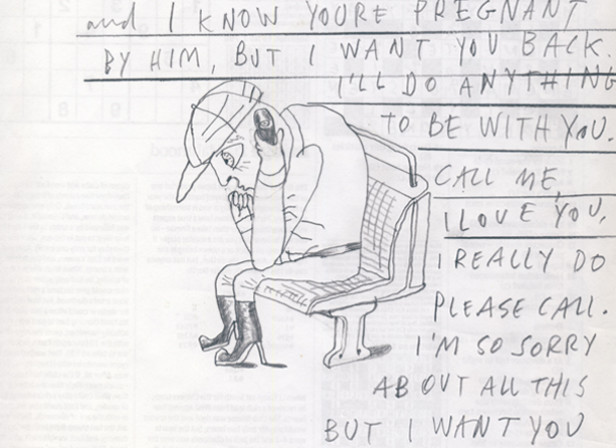 and I KNOW YOURE PREGNANT
BY HIM, BUT I WANT YOU BACK.
I'LL DO ANYTHING
TO BE WITH YOU.
CALL ME,
I LOVE YOU,
I REALLY DO
PLEASE CALL.
I'M SO SORRY
ABOUT ALL THIS
BUT I WANT YOU